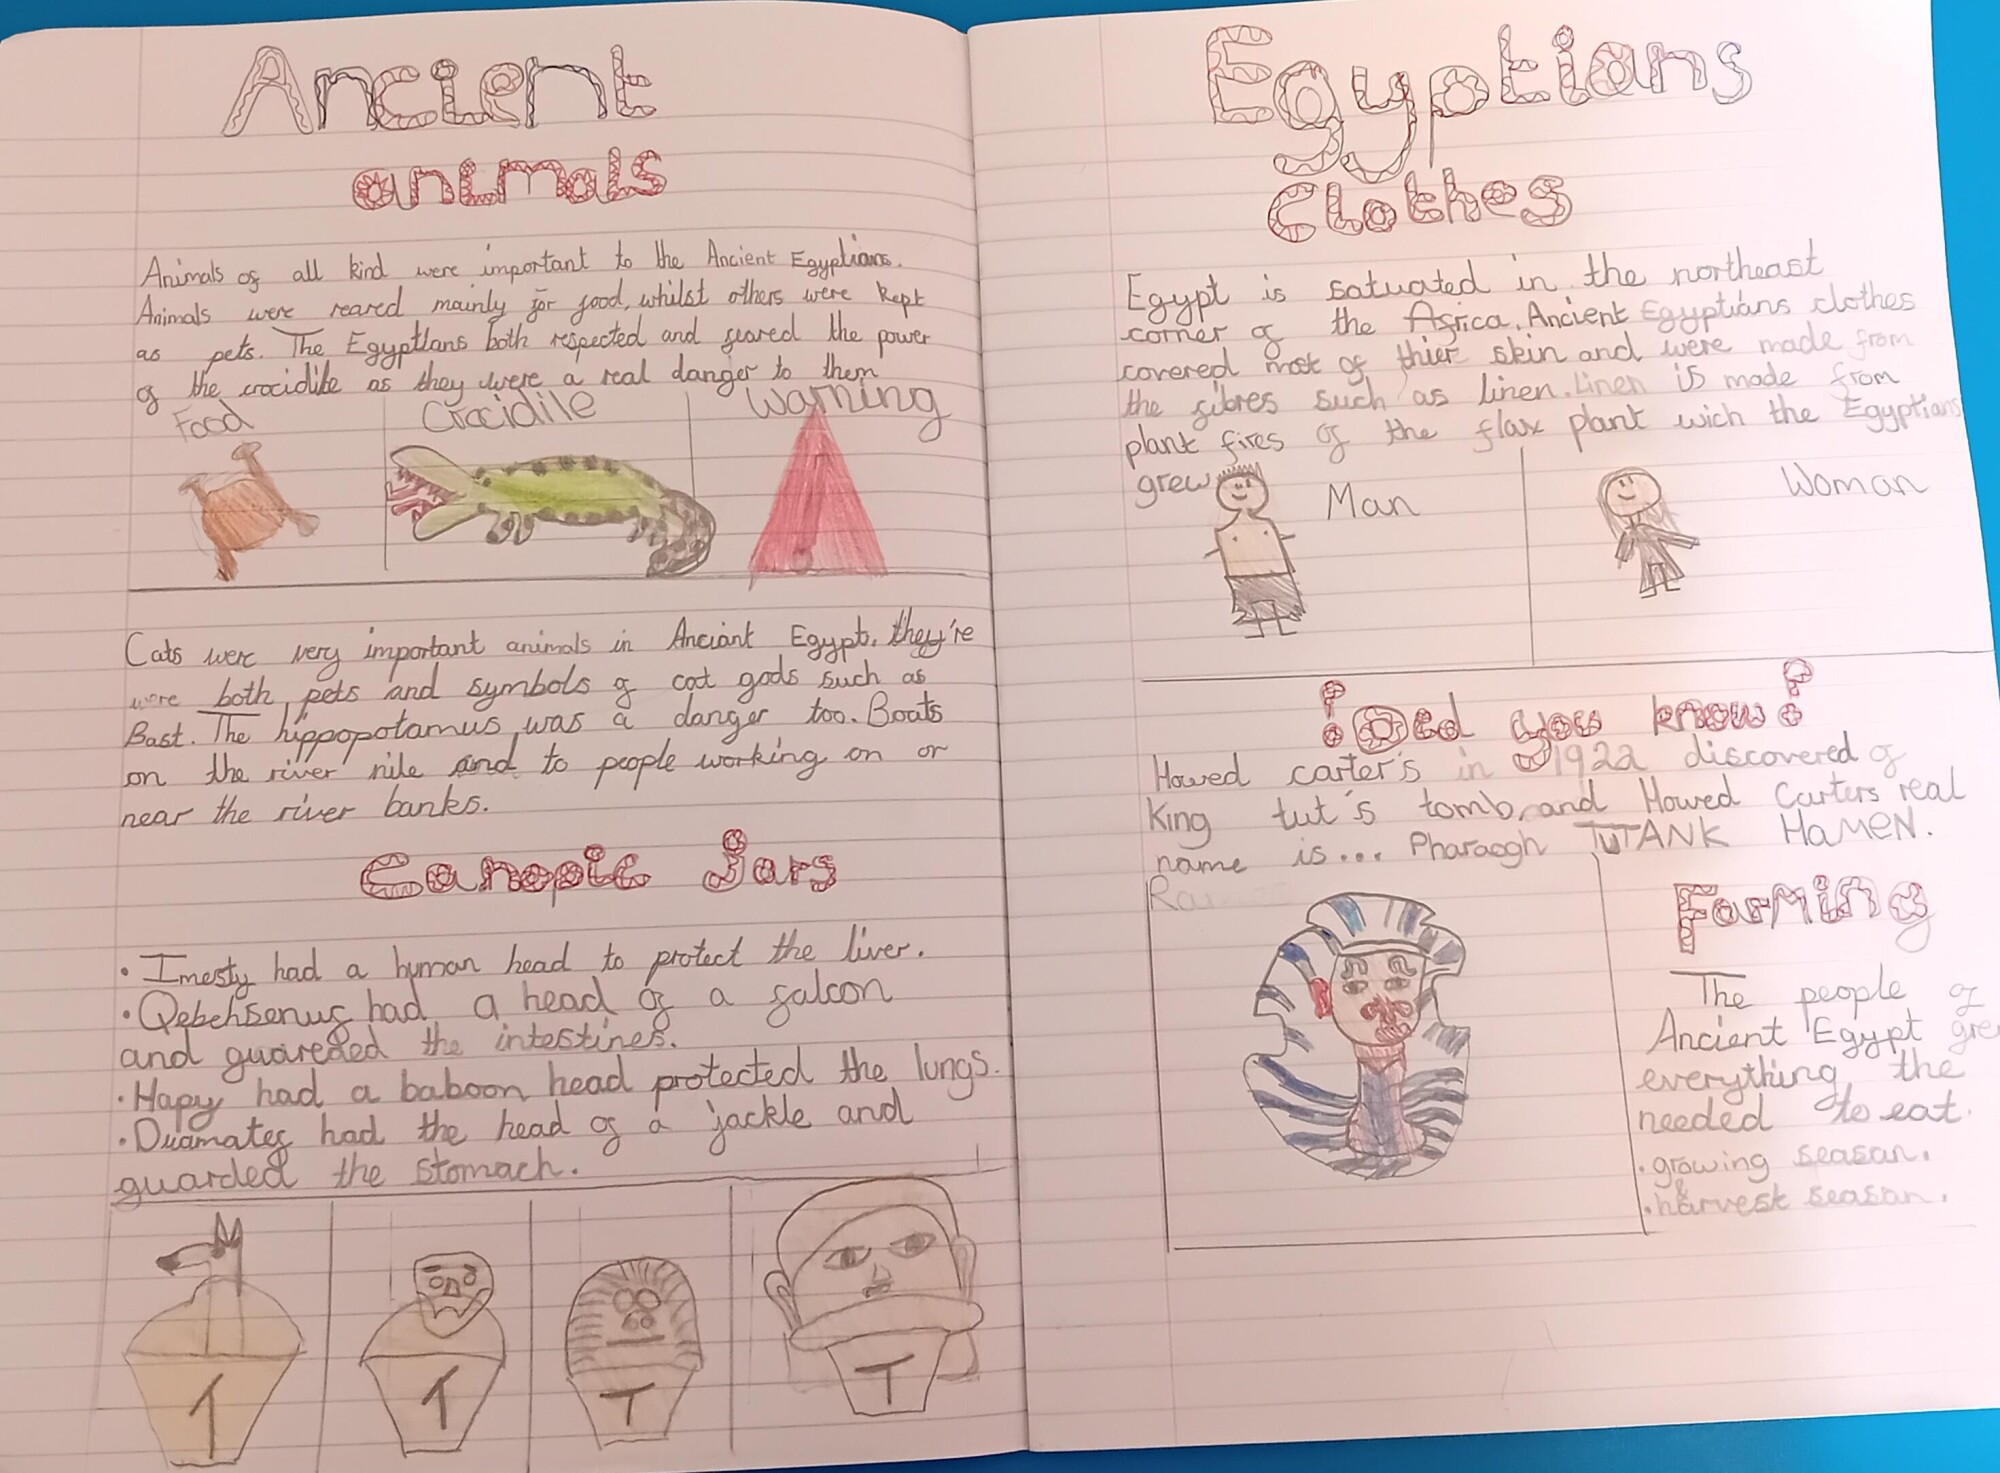 Ancient
animals
Animals of all kind were important to the Ancient Egyptians.
Animals were reared mainly for food, whilst others were kept
as pets. The Egyptians both respected and feared the power
of the crocidile as they were a real danger to them
Food Crocidile Warning
Cats were very important animals in Anciant Egypt, they're
were both pets and symbols of cat gods such as
Bast. The hippopotamus was a danger too. Boats
on the river nile and to people working on or
near the river banks.
Canopic Jars
• Imesty had a human head to protect the liver.
• Qebehsenuf had a head of a falcon
and guareded the intestines.
• Hapy had a baboon head protected the lungs.
• Duamatef had the head of a jackle and
guarded the stomach.
Egyptians
Clothes
Egypt is satuated in the northeast
corner of the Africa. Ancient Egyptians clothes
covered most of thier skin and were made from
the fibres such as linen. Linen is made from
plant fires of the flax plant wich the Egyptians
grew
Man Woman
! Did you know!
Howed carter's in 1922 discovered of
King tut's tomb, and Howed Carters real
name is... Pharaogh TUTANK HAMEN.
Farming
The people of
Ancient Egypt gre
everything the
needed to eat.
• growing seasan.
&
• harvest seasan.